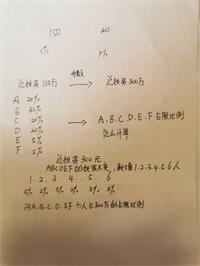 150 200
5% 10%
总投资150万 → 总投资300万
A 20%
B 30%
C 20% → A.B.C.D.E.F占股比例
D 20% 怎么计算
E 5%
F 5%
总投资300元
ABCDEF的投资不变,新增1.2.3.4.5.6人
1. 2. 3. 4. 5. 6
5% 5% 5% 5% 5% 5%
问A.B.C.D.EF六人占300万的占股比例